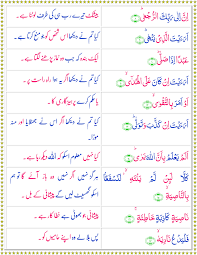 اِنَّ اِلٰى رَبِّكَ الرُّجْعٰىؕ
بیشک تیرے رب ہی کی طرف لوٹنا ہے۔
اَرَءَيْتَ الَّذِىْ يَنْهٰىۙ
کیا تم نے دیکھا اس شخص کو جو منع کرتا ہے۔
عَبْدًا اِذَا صَلّٰىؕ
ایک بندہ کو جب وہ نماز پڑھنے لگتا ہے۔
اَرَءَيْتَ اِنْ كَانَ عَلَى الْهُدٰٓىۙ
کیا تم نے دیکھا اگر یہ ہو راہ راست پر۔
اَوْ اَمَرَ بِالتَّقْوٰىؕ
یا حکم کرے پرہیزگاری کا۔
اَرَءَيْتَ اِنْ كَذَّبَ وَتَوَلّٰىؕ
کیا تم نے دیکھا اگر اس نے جھٹلایا اور منہ
موڑا۔
اَلَمْ يَعْلَمْ بِاَنَّ اللّٰهَ يَرٰىؕ
کیا نہیں معلوم اسکو کہ اللہ دیکھ رہا ہے۔
كَلَّا لَئِنْ لَّمْ يَنْتَهِ لَنَسْفَعًۢا
بِالنَّاصِيَةِۙ
نہیں اگر وہ باز نہ آئے گا تو ہم
اسکو گھسیٹیں گے پیشانی کے بل۔
نَاصِيَةٍ كَاذِبَةٍ خَاطِئَةٍۚ
پیشانی جو جھوٹی ہے خطا کار ہے۔
فَلْيَدْعُ نَادِيَهٗۙ
پس بلالے وہ اپنے حامیوں کو۔